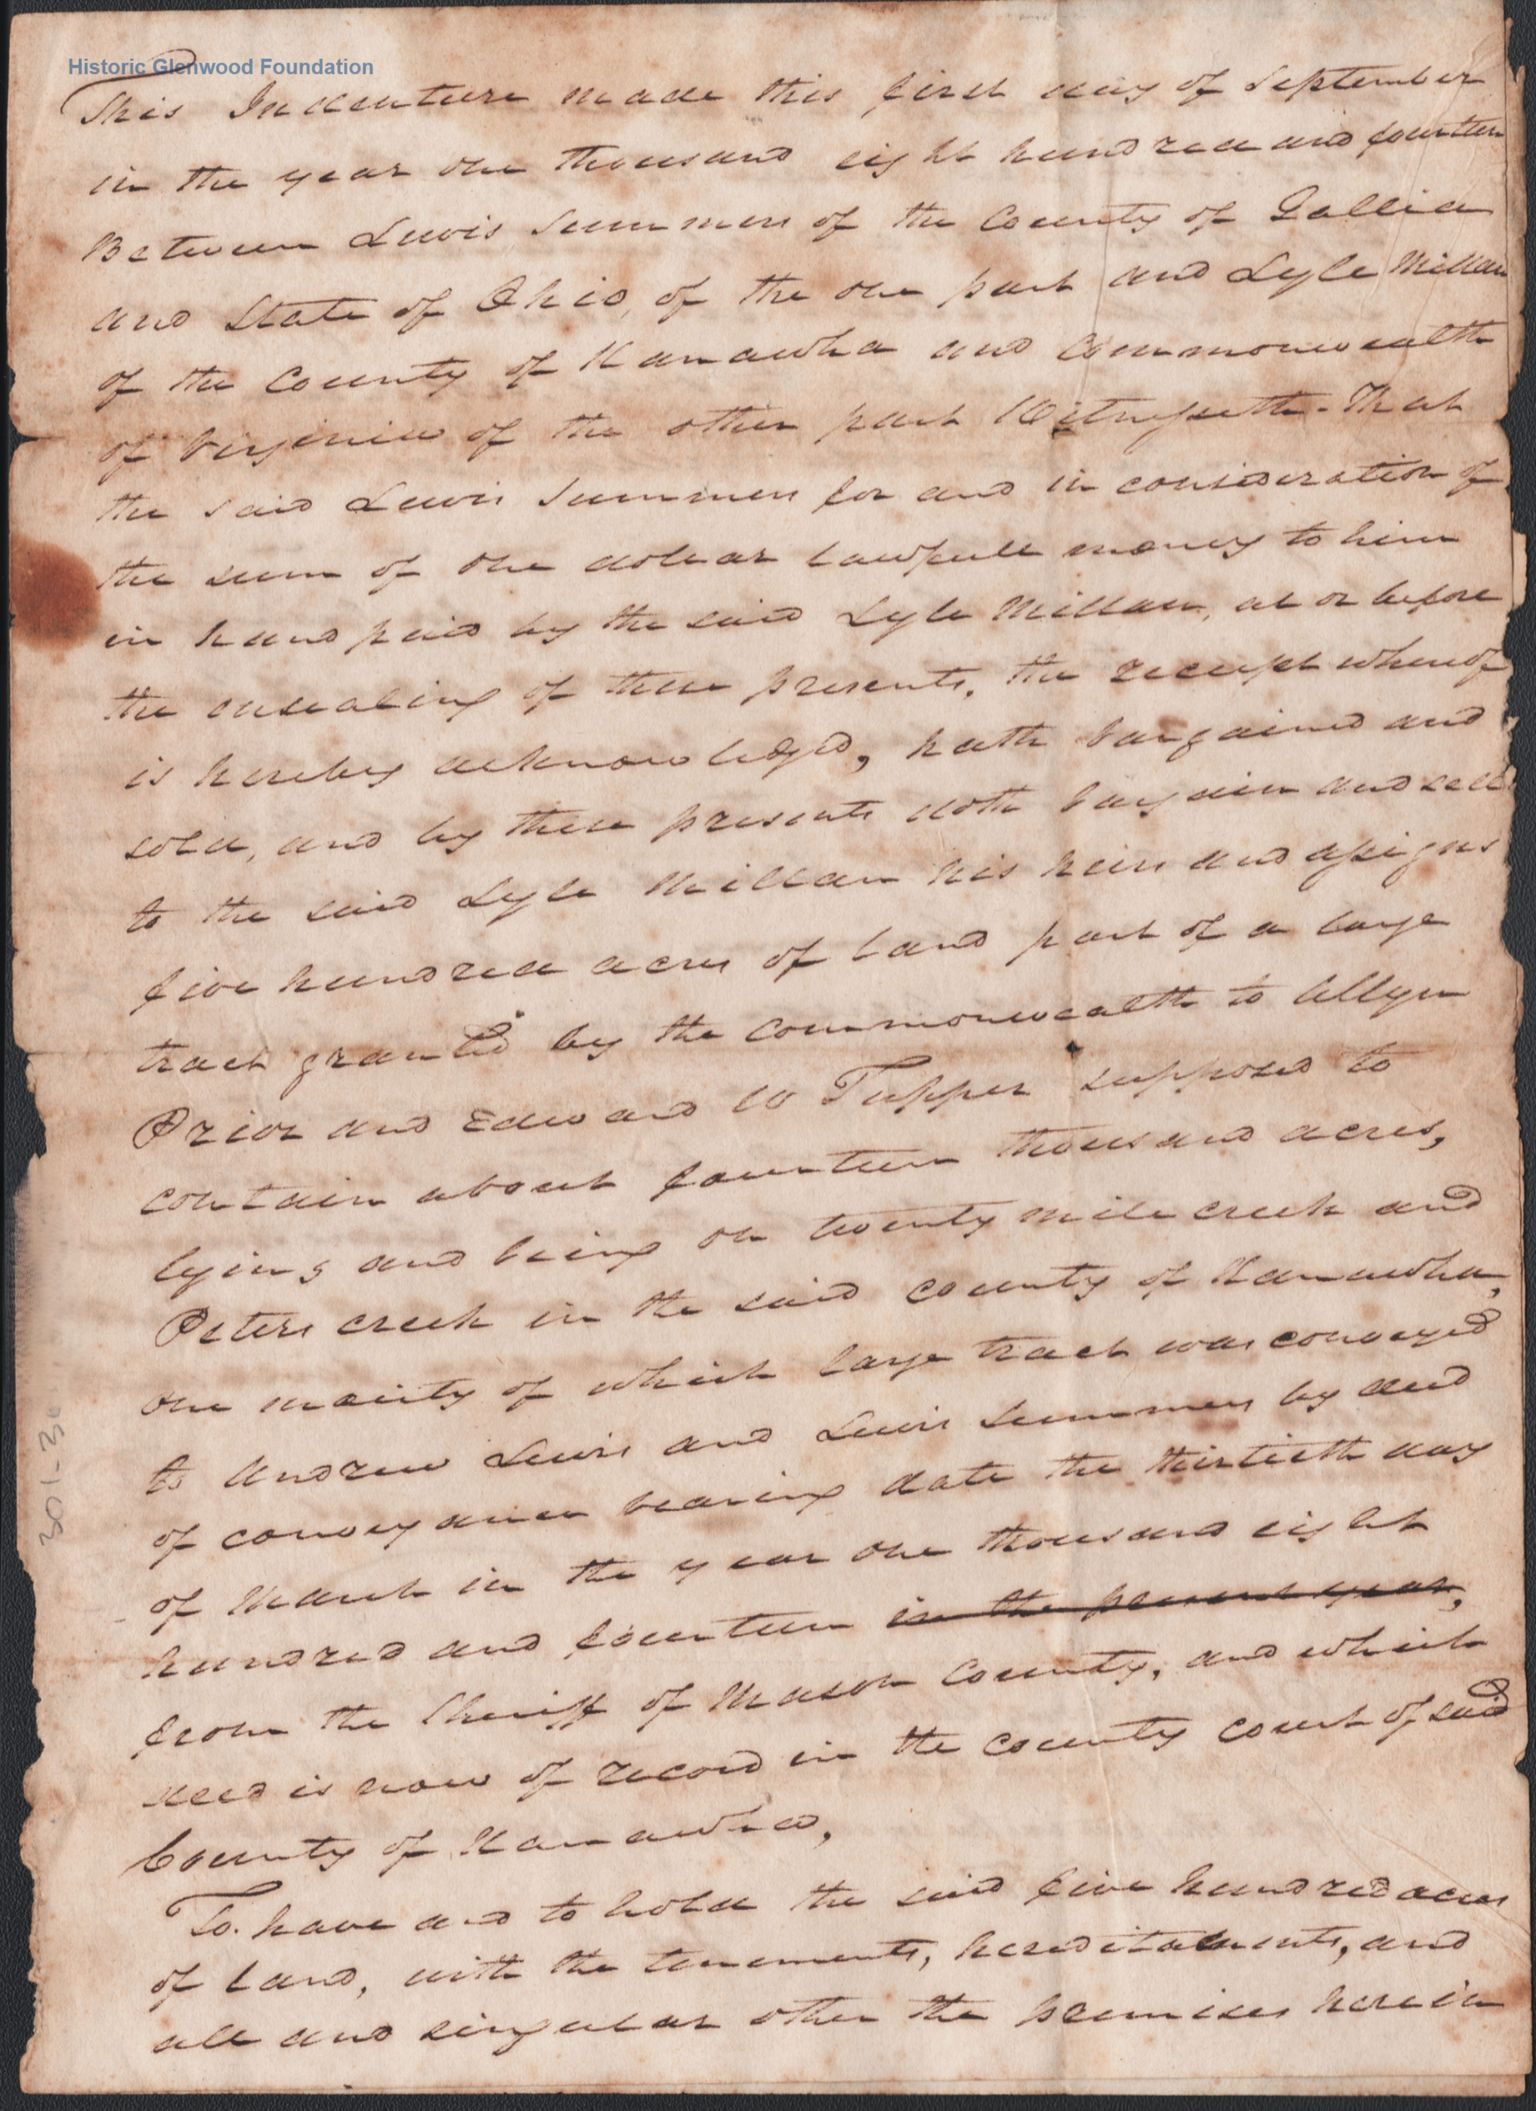 Historic Glenwood Foundation
This Indenture made this first day of September
in the year one thousand eight hundred and fourteen
Between Lewis Summers of the County of Gallia
and State of Ohio, of the one part and Lyle Millan
of the County of Kanawha and Commonwealth
of Virginia of the other part Witnesseth. That
the said Lewis Summers for and in consideration of
the sum of one dollar lawfull money to him
in hand paid by the said Lyle Millan, at or before
the ensealing of these presents, the receipt whereof
is hereby acknowledged, hath bargained and
sold, and by these presents doth bargain and sell
to the said Lyle Millan his heirs and assigns
five hundred acres of land part of a large
tract granted by the commonwealth to Allyn
Prior and Edward W Tupper supposed to
contain about fourteen thousand acres,
lying and being on twenty mile creek and
Peters creek in the said county of Kanawha,
one moiety of which large tract was conveyed
to Andrew Lewis and Lewis Summers by deed
of conveyance bearing date the thirtieth day
of March in the year one thousand eight
hundred and fourteen in the present year,
from the Sheriff of Mason County, and which
deed is now of record in the county court of said
County of Kanawha,
To have and to hold the said five hundred acres
of land, with the tenements, hereditaments, and
all and singular other the premises herein